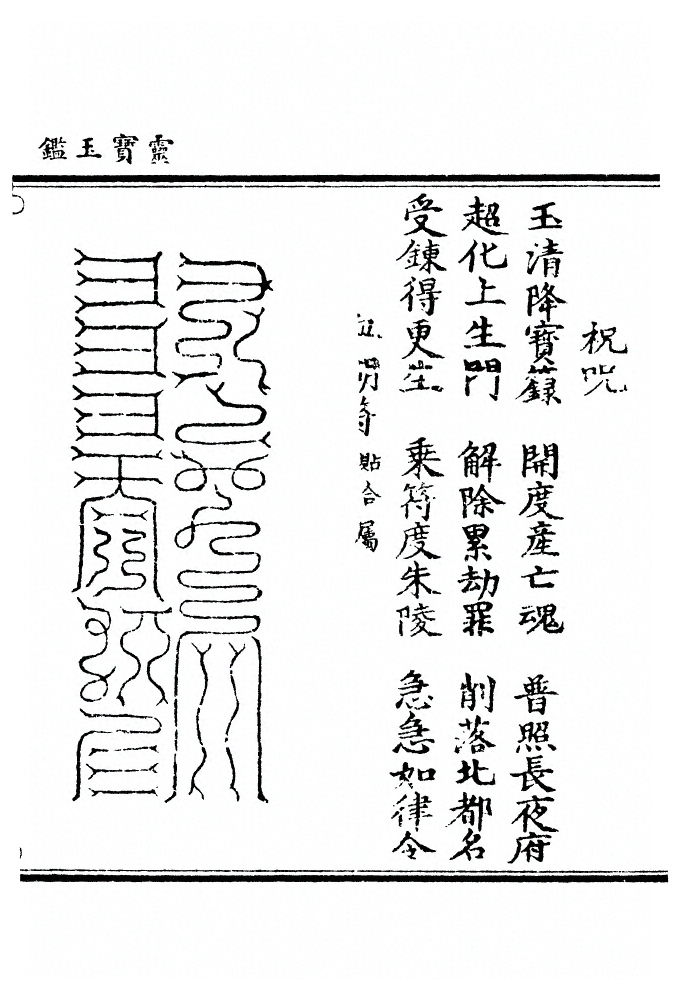 靈寶玉鑑
祝呪
玉清降寶籙 開度產亡魂 普照長夜府
超化上生門 解除累劫罪 削落北都名
受鍊得更生 乘符度朱陵 急急如律令
符貼合屬